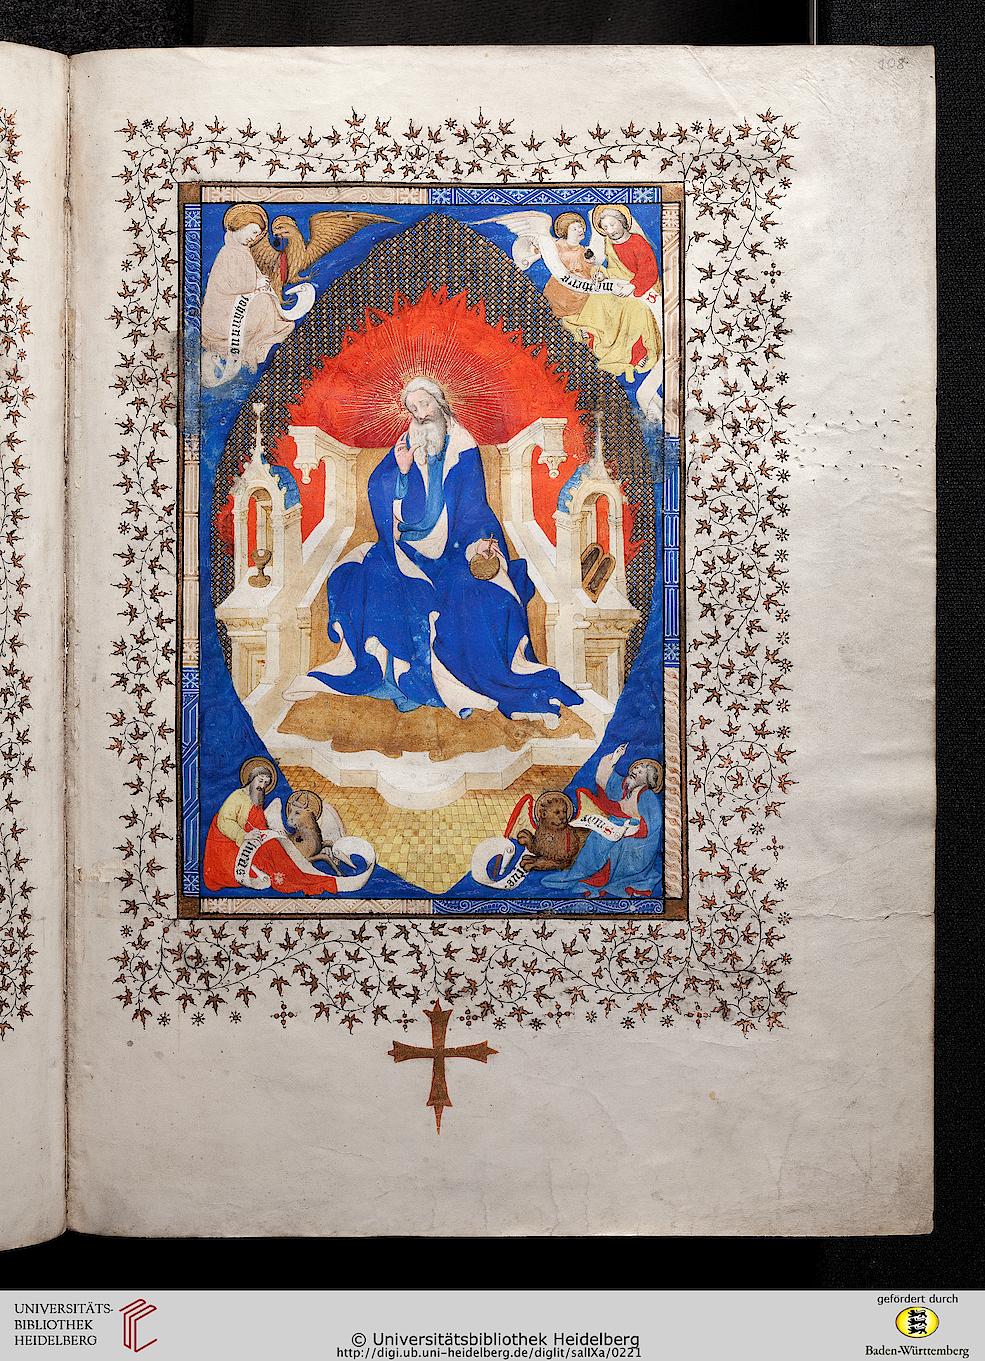 108
Johannes
Lucas
UNIVERSITÄTS-
BIBLIOTHEK
HEIDELBERG
© Universitätsbibliothek Heidelberg
http://digi.ub.uni-heidelberg.de/diglit/salIXa/0221
gefördert durch
Baden-Württemberg